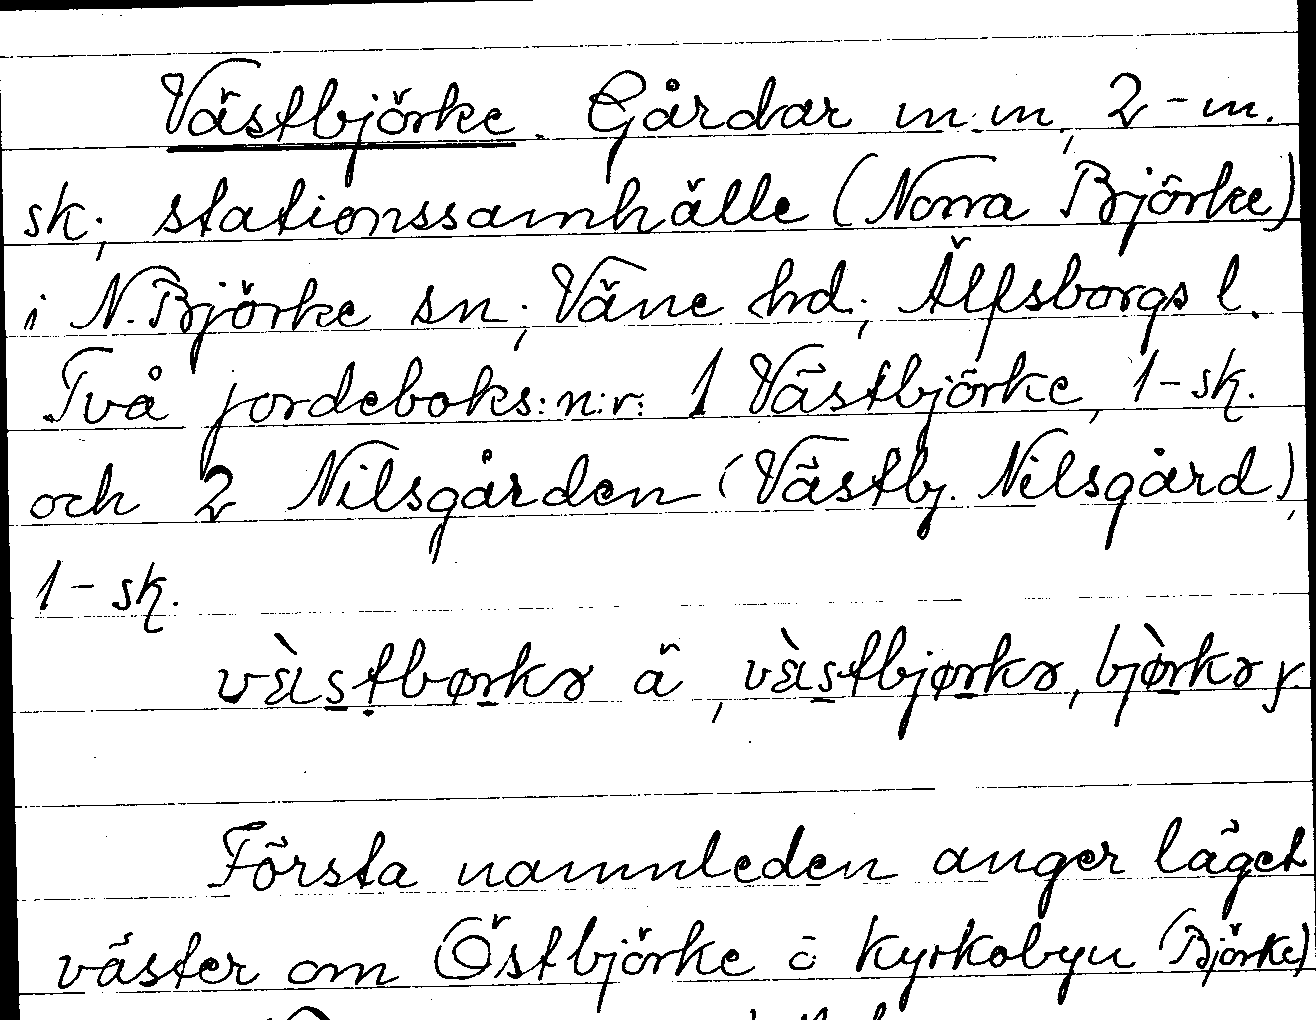 Västbjörke. Gårdar m.m., 2-m.
sk., stationssamhälle (Norra Björke)
i N. Björke sn, Väne hd, Älfsborgs l.
Två jordeboks:n:r: 1 Västbjörke, 1-sk.
och 2 Nilsgården (Västbj. Nilsgård),
1-sk.
bjørkə y.
Första namnleden anger läget
väster om Östbjörke o kyrkobyn (Björke)